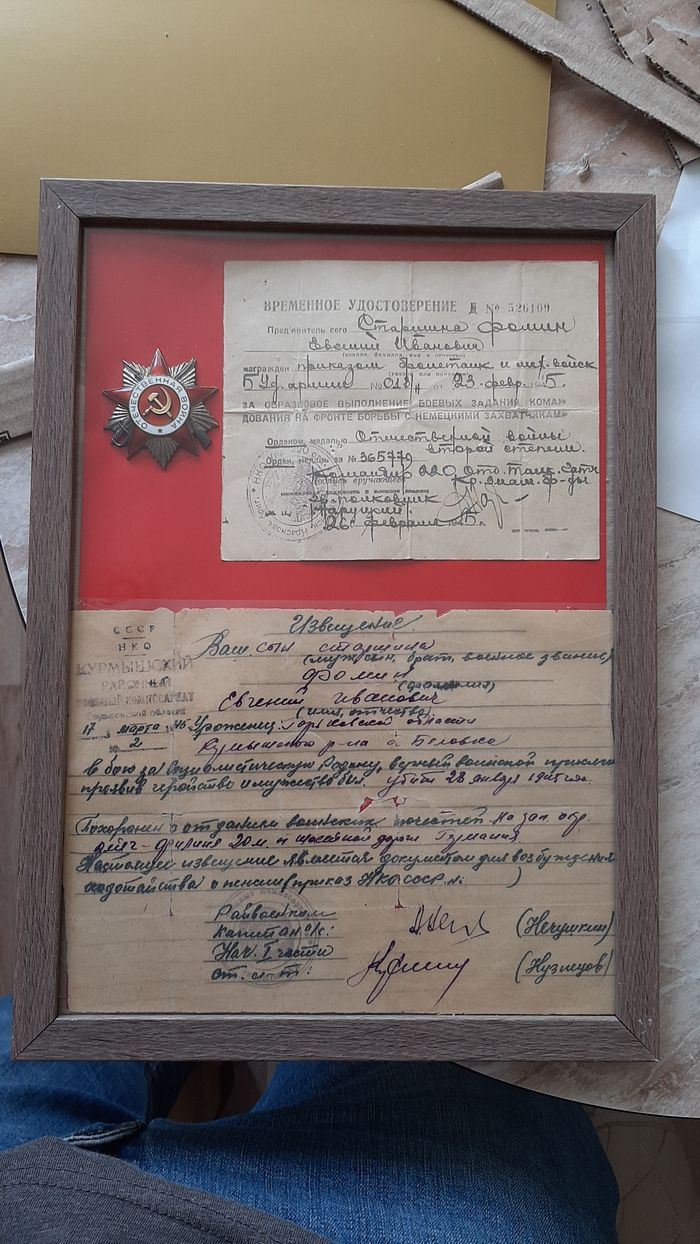 ОТЕЧЕСТВЕННАЯ ВОЙНА
ВРЕМЕННОЕ УДОСТОВЕРЕНИЕ Д № 526109
Пред'явитель сего Старшина Фомин
Евгений Иванович
(звание, фамилия, имя и отчество)
награжден приказом бронетанк и мех. войск
5 Уд. армии № 018/н от 23 февр. 1945.
ЗА ОБРАЗЦОВОЕ ВЫПОЛНЕНИЕ БОЕВЫХ ЗАДАНИЙ КОМАН-
ДОВАНИЯ НА ФРОНТЕ БОРЬБЫ С НЕМЕЦКИМИ ЗАХВАТЧИКАМИ
Орденом, медалью Отечественной войны
второй степени.
Орден, медаль за № 365770
Командир 220 Отд. Танк.
Кр. знам.
Подпись вручающего
подполковник
26 февраля 1945 г.
СССР
НКО
КУРМЫШСКИЙ
РАЙОННЫЙ
ВОЕННЫЙ КОМИССАРИАТ
Горьковской области
17 марта 1945
№ 2
Извещение
Ваш сын старшина
(муж, сын, брат, военное звание)
Фомин
(фамилия)
Евгений Иванович
(имя, отчество)
Уроженец Горьковской области
Курмышского р-на д. Беловка
в бою за Социалистическую Родину, верный воинской присяге
проявив геройство и мужество был убит 28 января 1945 года
Похоронен с отданием воинских почестей на зап. окр.
20 м. шоссейной дороги Германия
Настоящее извещение является документом для возбуждения
ходотайства о пенсии (приказ НКО СССР № )
Райвоенком
капитан а/с: (Нечушкин)
Нач. I части
ст. л-т: (Кузнецов)